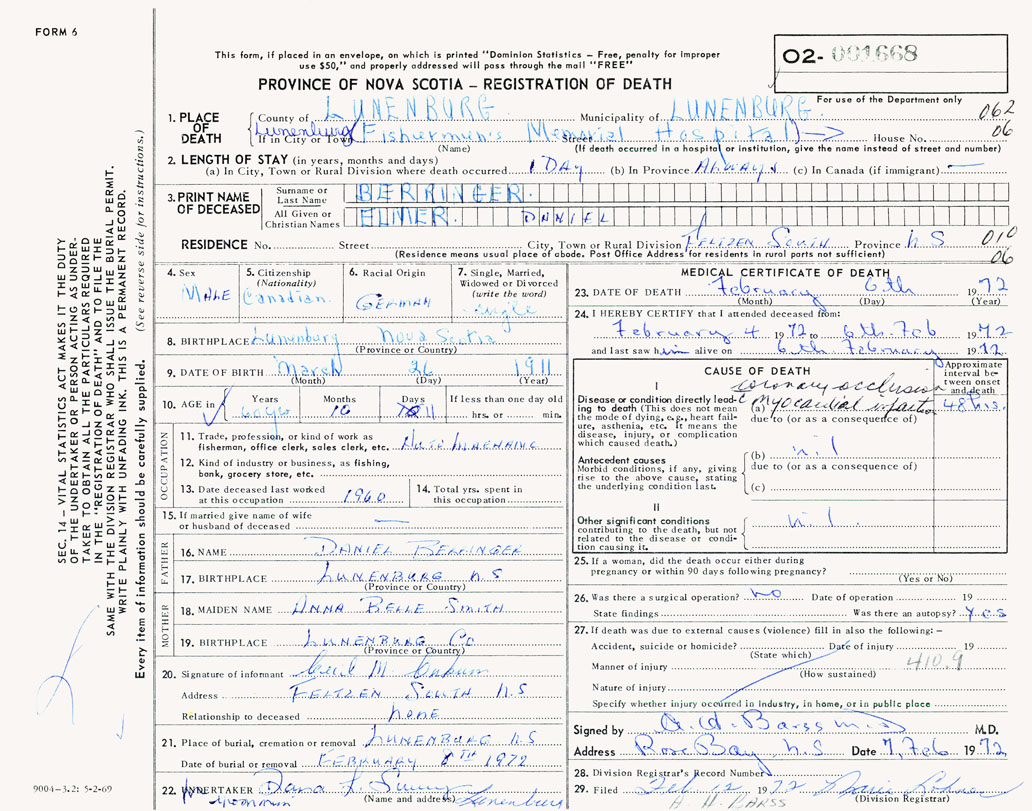 FORM 6
This form, if placed in an envelope, on which is printed "Dominion Statistics – Free, penalty for improper
use $50," and properly addressed will pass through the mail "FREE"
O2- 001668
For use of the Department only
PROVINCE OF NOVA SCOTIA – REGISTRATION OF DEATH
1. PLACE OF DEATH
County of LUNENBURG Municipality of LUNENBURG 062
Lunenburg Fishermen's Memorial Hospital 06
If in City or Town Street House No.
(Name) (If death occurred in a hospital or institution, give the name instead of street and number)
2. LENGTH OF STAY (in years, months and days)
(a) In City, Town or Rural Division where death occurred 1 DAY (b) In Province ALWAYS (c) In Canada (if immigrant) —
3. PRINT NAME OF DECEASED
Surname or Last Name BERRINGER.
All Given or Christian Names ELMER. DANIEL
RESIDENCE No. Street City, Town or Rural Division FELTZEN SOUTH Province N S 010
(Residence means usual place of abode. Post Office Address for residents in rural parts not sufficient) 06
4. Sex MALE
5. Citizenship (Nationality) Canadian
6. Racial Origin GERMAN
7. Single, Married, Widowed or Divorced (write the word) single
8. BIRTHPLACE Lunenburg Nova Scotia
(Province or Country)
9. DATE OF BIRTH March 26 1911
(Month) (Day) (Year)
10. AGE in Years Months Days If less than one day old
60 yrs 10 11 hrs. or min.
OCCUPATION
11. Trade, profession, or kind of work as
fisherman, office clerk, sales clerk, etc.
12. Kind of industry or business, as fishing,
bank, grocery store, etc.
13. Date deceased last worked
at this occupation 1960
14. Total yrs. spent in
this occupation
15. If married give name of wife
or husband of deceased —
FATHER
16. NAME DANIEL BERRINGER
17. BIRTHPLACE LUNENBURG N S
(Province or Country)
MOTHER
18. MAIDEN NAME ANNA BELLE SMITH
19. BIRTHPLACE LUNENBURG Co
(Province or Country)
20. Signature of informant Cecil M.
Address FELTZEN SOUTH N.S
Relationship to deceased none
21. Place of burial, cremation or removal LUNENBURG N S
Date of burial or removal FEBRUARY 8TH 1972
22. UNDERTAKER Dana L. Sweeny Lunenburg
(Name and address)
MEDICAL CERTIFICATE OF DEATH
23. DATE OF DEATH February 6th 1972
(Month) (Day) (Year)
24. I HEREBY CERTIFY that I attended deceased from:
February 4 1972 to 6th Feb 1972
and last saw him alive on 6th February 1972.
CAUSE OF DEATH
Approximate interval between onset and death
I coronary occlusion
Disease or condition directly leading to death (This does not mean the mode of dying, e.g., heart failure, asthenia, etc. It means the disease, injury, or complication which caused death.)
(a) myocardial infarction 48 hrs.
due to (or as a consequence of)
Antecedent causes
Morbid conditions, if any, giving rise to the above cause, stating the underlying condition last.
(b) nil
due to (or as a consequence of)
(c)
II
Other significant conditions
contributing to the death, but not related to the disease or condition causing it.
nil
25. If a woman, did the death occur either during
pregnancy or within 90 days following pregnancy?
(Yes or No)
26. Was there a surgical operation? no Date of operation 19
State findings Was there an autopsy? Yes
27. If death was due to external causes (violence) fill in also the following: –
Accident, suicide or homicide? Date of injury 19
(State which)
Manner of injury 410.9
(How sustained)
Nature of injury
Specify whether injury occurred in industry, in home, or in public place
Signed by A. H. Barss M.D. M.D.
Address Rose Bay N.S Date 7, Feb 1972
28. Division Registrar's Record Number
29. Filed Feb 12 1972
A. H. BARSS (Division Registrar)
SEC. 14 – VITAL STATISTICS ACT MAKES IT THE DUTY
OF THE UNDERTAKER OR PERSON ACTING AS UNDER-
TAKER TO OBTAIN ALL THE PARTICULARS REQUIRED
IN THE "REGISTRATION OF DEATH" AND TO FILE THE
SAME WITH THE DIVISION REGISTRAR WHO SHALL ISSUE THE BURIAL PERMIT.
WRITE PLAINLY WITH UNFADING INK. THIS IS A PERMANENT RECORD.
Every item of information should be carefully supplied. (See reverse side for instructions.)
9004–3.2: 5-2-69